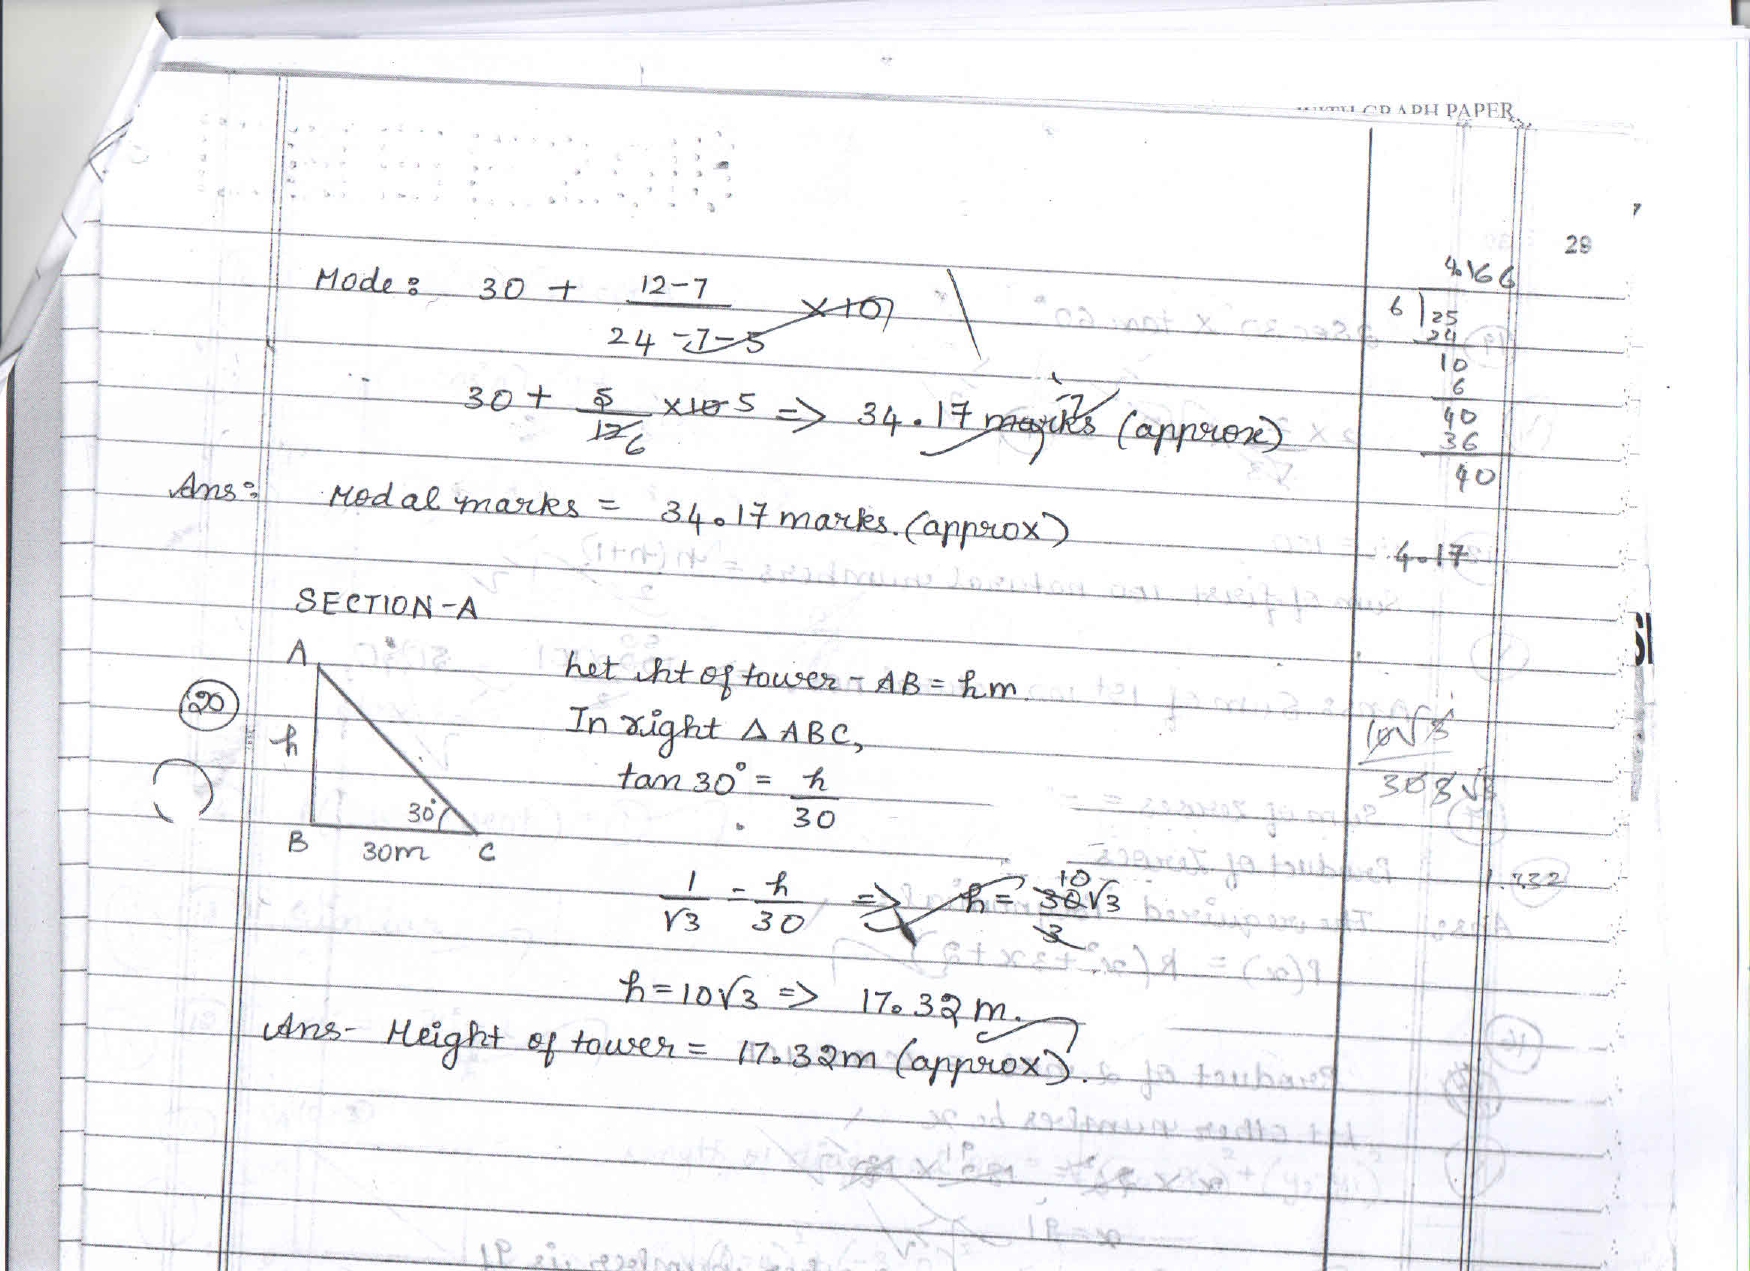 GRAPH PAPER
29
Mode: 30 + 12-7 / 24-7-5 × 10
30 + 5/12 6 × 10 5 => 34.17 marks (approx)
Ans: Modal marks = 34.17 marks. (approx)
4.166
6 25
24
10
6
40
36
40
4.17
SECTION-A
20
A
h
B
30m
C
30°
Let ht of tower - AB = hm.
In right △ ABC,
tan 30° = h/30
1/√3 = h/30 => h = 10 30√3 / 3
h = 10√3 => 17.32 m.
Ans- Height of tower = 17.32m (approx).
10√3
1.732